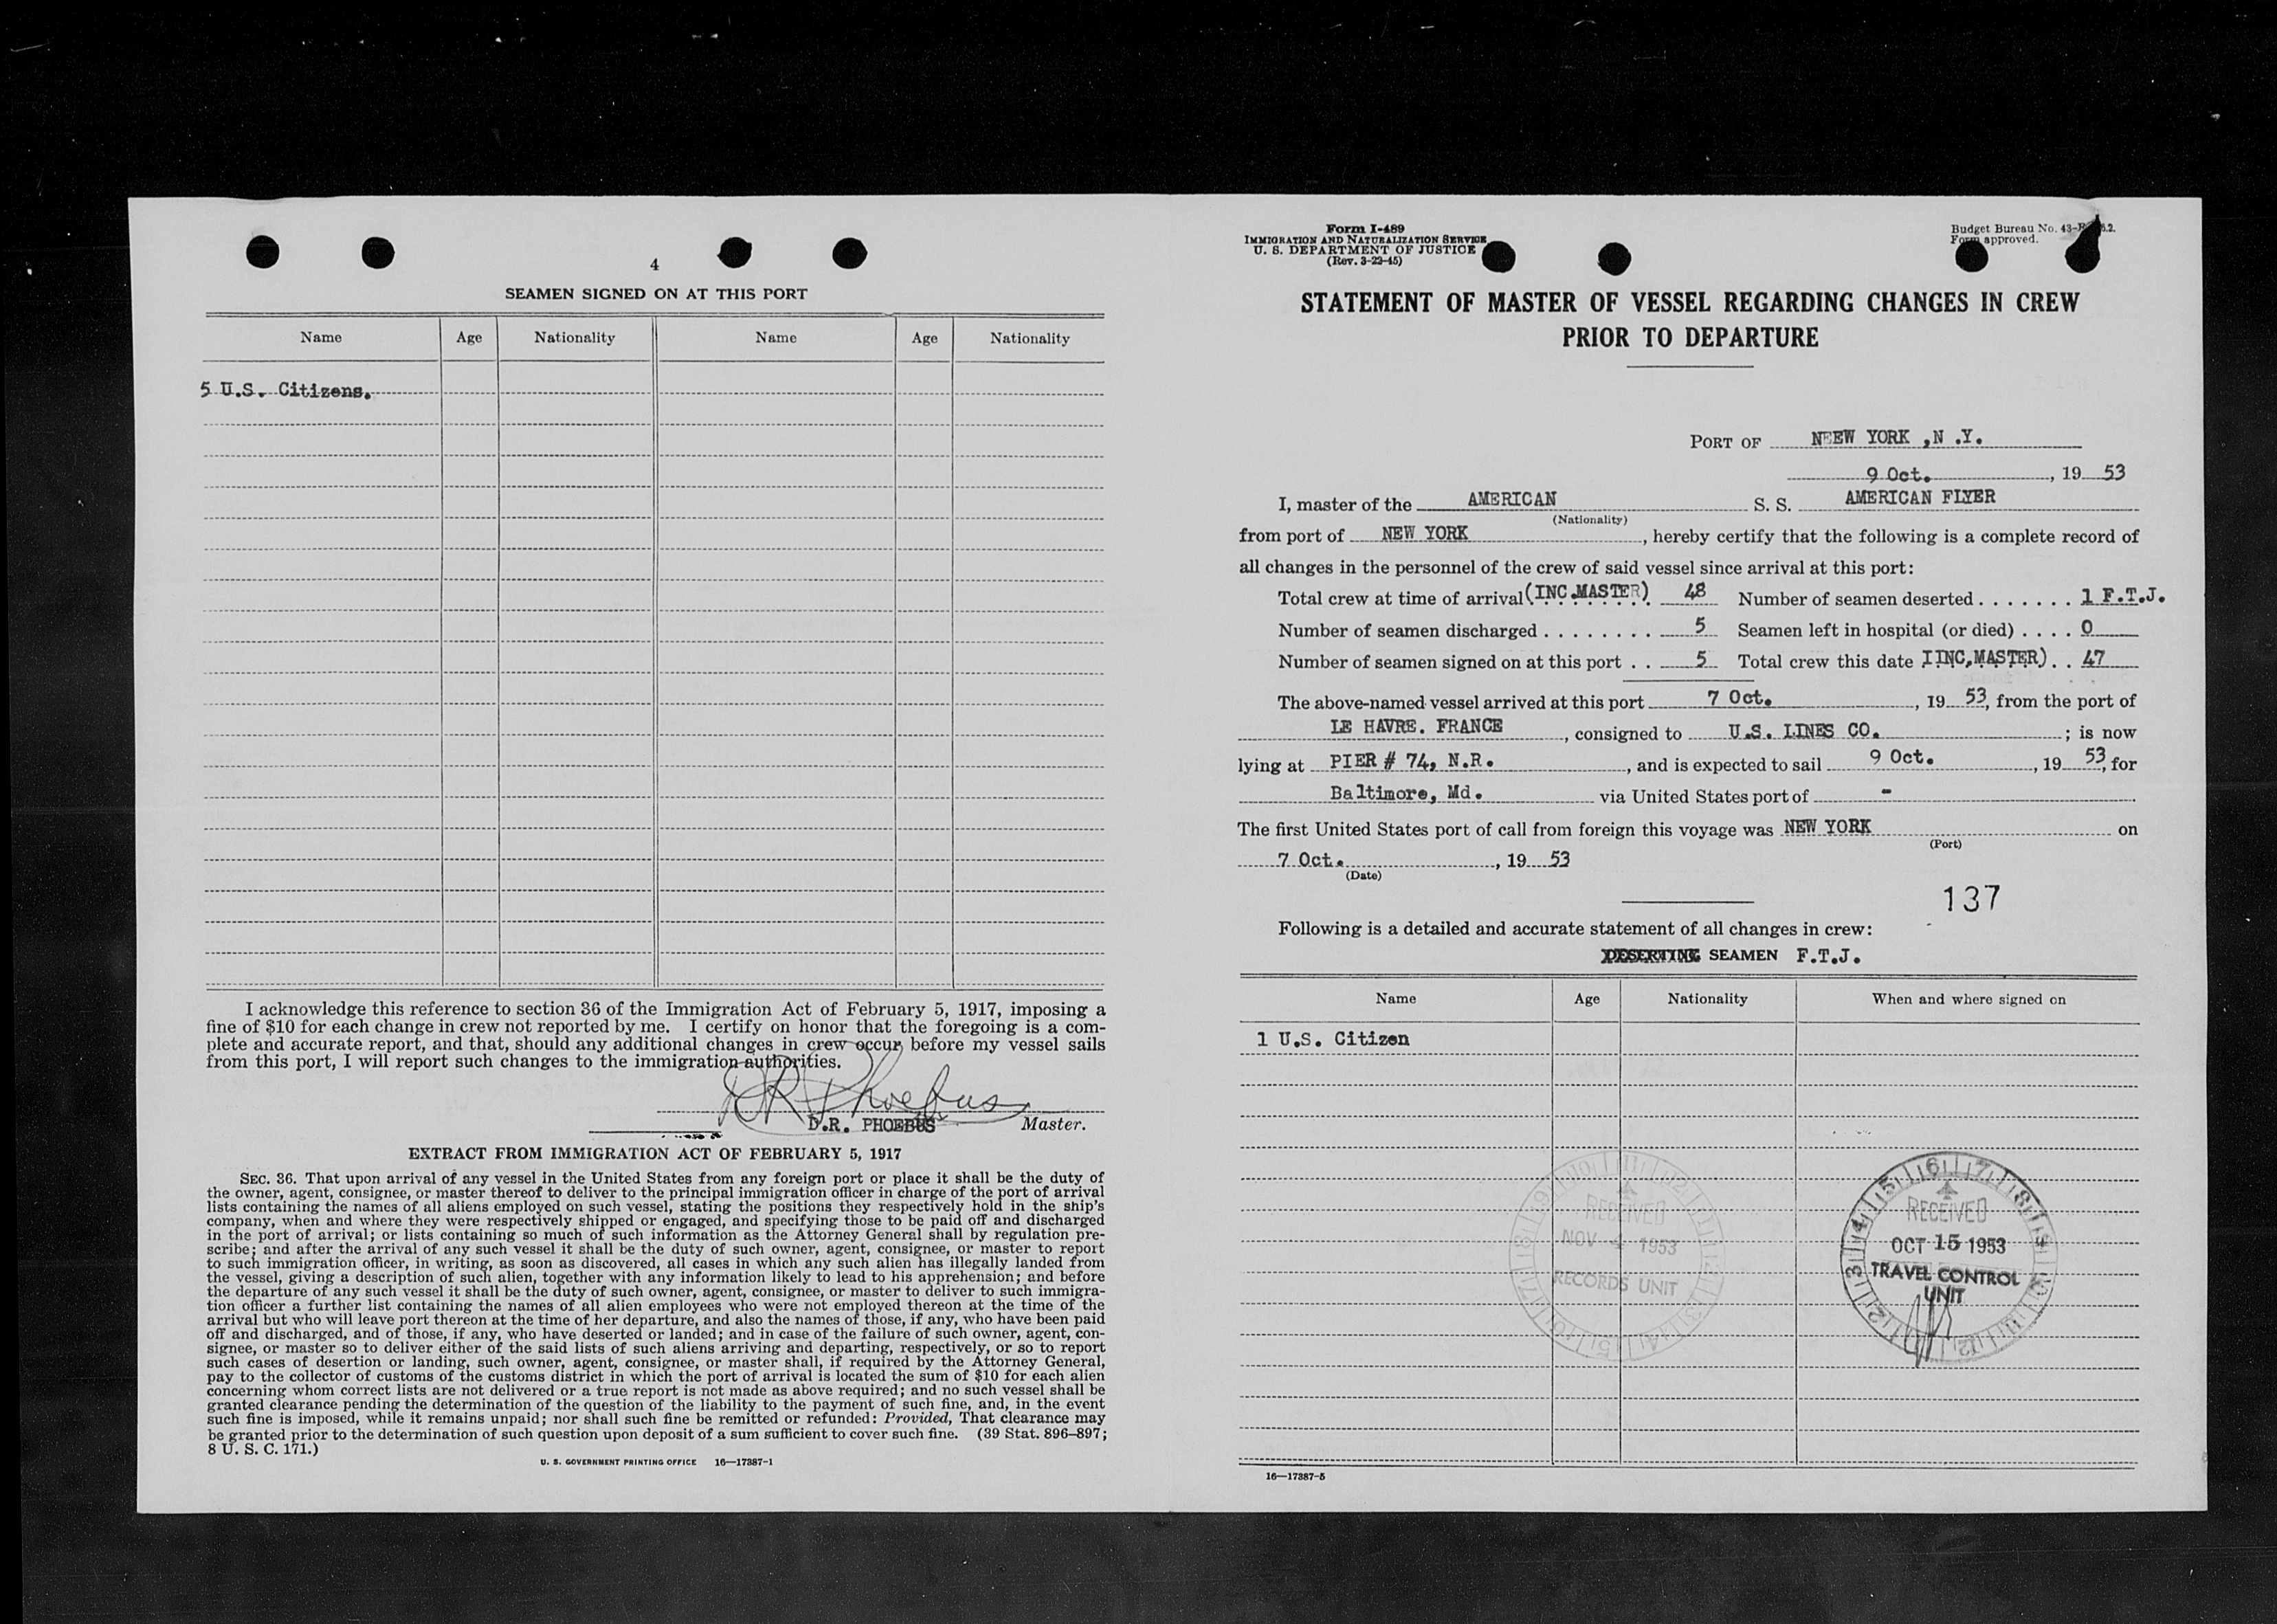 4
SEAMEN SIGNED ON AT THIS PORT
Name Age Nationality Name Age Nationality
5 U.S. Citizens.
I acknowledge this reference to section 36 of the Immigration Act of February 5, 1917, imposing a
fine of $10 for each change in crew not reported by me. I certify on honor that the foregoing is a com-
plete and accurate report, and that, should any additional changes in crew occur before my vessel sails
from this port, I will report such changes to the immigration authorities.
DR Phoebus
D.R. PHOEBUS Master.
EXTRACT FROM IMMIGRATION ACT OF FEBRUARY 5, 1917
SEC. 36. That upon arrival of any vessel in the United States from any foreign port or place it shall be the duty of
the owner, agent, consignee, or master thereof to deliver to the principal immigration officer in charge of the port of arrival
lists containing the names of all aliens employed on such vessel, stating the positions they respectively hold in the ship's
company, when and where they were respectively shipped or engaged, and specifying those to be paid off and discharged
in the port of arrival; or lists containing so much of such information as the Attorney General shall by regulation pre-
scribe; and after the arrival of any such vessel it shall be the duty of such owner, agent, consignee, or master to report
to such immigration officer, in writing, as soon as discovered, all cases in which any such alien has illegally landed from
the vessel, giving a description of such alien, together with any information likely to lead to his apprehension; and before
the departure of any such vessel it shall be the duty of such owner, agent, consignee, or master to deliver to such immigra-
tion officer a further list containing the names of all alien employees who were not employed thereon at the time of the
arrival but who will leave port thereon at the time of her departure, and also the names of those, if any, who have been paid
off and discharged, and of those, if any, who have deserted or landed; and in case of the failure of such owner, agent, con-
signee, or master so to deliver either of the said lists of such aliens arriving and departing, respectively, or so to report
such cases of desertion or landing, such owner, agent, consignee, or master shall, if required by the Attorney General,
pay to the collector of customs of the customs district in which the port of arrival is located the sum of $10 for each alien
concerning whom correct lists are not delivered or a true report is not made as above required; and no such vessel shall be
granted clearance pending the determination of the question of the liability to the payment of such fine, and, in the event
such fine is imposed, while it remains unpaid; nor shall such fine be remitted or refunded: Provided, That clearance may
be granted prior to the determination of such question upon deposit of a sum sufficient to cover such fine. (39 Stat. 896–897;
8 U. S. C. 171.)
U. S. GOVERNMENT PRINTING OFFICE 16—17387-1
Form I-489
IMMIGRATION AND NATURALIZATION SERVICE
U. S. DEPARTMENT OF JUSTICE
(Rev. 3-22-45)
Budget Bureau No.
Form approved.
STATEMENT OF MASTER OF VESSEL REGARDING CHANGES IN CREW
PRIOR TO DEPARTURE
PORT OF NEEW YORK ,N .Y.
9 Oct. , 19 53
I, master of the AMERICAN S. S. AMERICAN FLYER
(Nationality)
from port of NEW YORK , hereby certify that the following is a complete record of
all changes in the personnel of the crew of said vessel since arrival at this port:
Total crew at time of arrival (INC.MASTER) 48 Number of seamen deserted . . . . . . . 1 F.T.J.
Number of seamen discharged . . . . . . . . 5 Seamen left in hospital (or died) . . . . 0
Number of seamen signed on at this port . . 5 Total crew this date IINC,MASTER) . . 47
The above-named vessel arrived at this port 7 Oct. , 19 53, from the port of
LE HAVRE. FRANCE , consigned to U.S. LINES CO. ; is now
lying at PIER # 74, N.R. , and is expected to sail 9 Oct. , 19 53, for
Baltimore, Md. via United States port of -
The first United States port of call from foreign this voyage was NEW YORK on
(Port)
7 Oct. , 19 53
(Date)
137
Following is a detailed and accurate statement of all changes in crew:
DESERTING SEAMEN F.T.J.
Name Age Nationality When and where signed on
1 U.S. Citizen
RECEIVED
NOV 4 1953
RECORDS UNIT
RECEIVED
OCT 15 1953
TRAVEL CONTROL
UNIT
16—17387-5